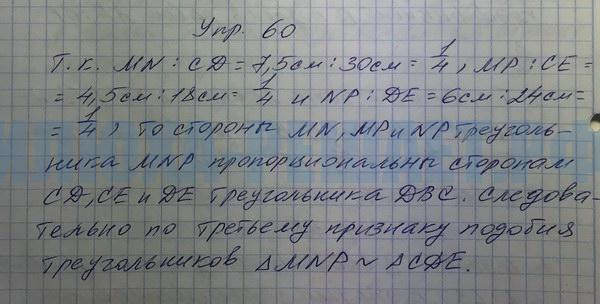 Упр. 60
Т.к. MN : CD = 7,5см : 30см = 1/4, MP : CE =
= 4,5см : 18см = 1/4 и NP : DE = 6см : 24см =
= 1/4, то стороны MN, MP и NP треуголь-
ника MNP пропорциональны сторонам
CD, CE и DE треугольника DBC. Следова-
тельно по третьему признаку подобия
треугольников ΔMNP ~ ΔCDE.